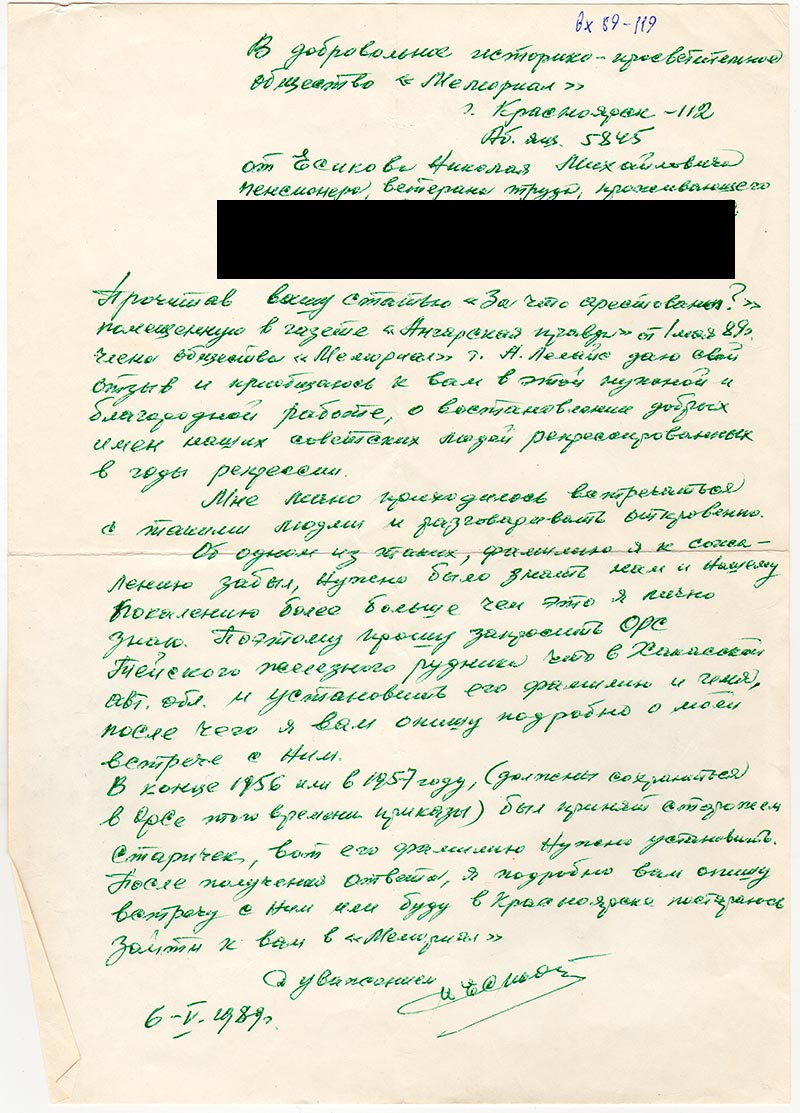 вх 89-119
В добровольное историко-просветительное
общество «Мемориал»
г. Красноярск-112
Аб. ящ. 5845
от Есикова Николая Михайловича
пенсионера, ветерана труда, проживающего
Прочитав вашу статью «За что арестованы?»
помещенную в газете «Ангарская правда» от 1 мая 89г.
члена общества «Мемориал» т. А. даю свой
отзыв и приобщаюсь к вам в этой нужной и
благородной работе, о востановление добрых
имен наших советских людей репрессированных
в годы репрессии.
Мне лично приходилось встречаться
с такими людми и разговаривать откровенно.
Об одном из таких, фамилию я к сожа-
лению забыл, нужно было знать нам и нашему
покалению более больше чем это я лично
знаю. Поэтому прошу запросить ОРС
Тейского железного рудника что в Хакасской
авт. обл. и установить его фамилию и имя,
после чего я вам опишу подробно о моей
встрече с ним.
В конце 1956 или в 1957 году, (должны сохраниться
в Орсе этого времени приказы) был принят сторожем
старичек, вот его фамилию нужно установить.
После получения ответа, я подробно вам опишу
встречу с ним или буду в Красноярске постараюсь
зайти к вам в «Мемориал»
С уважением
6-V-1989г.